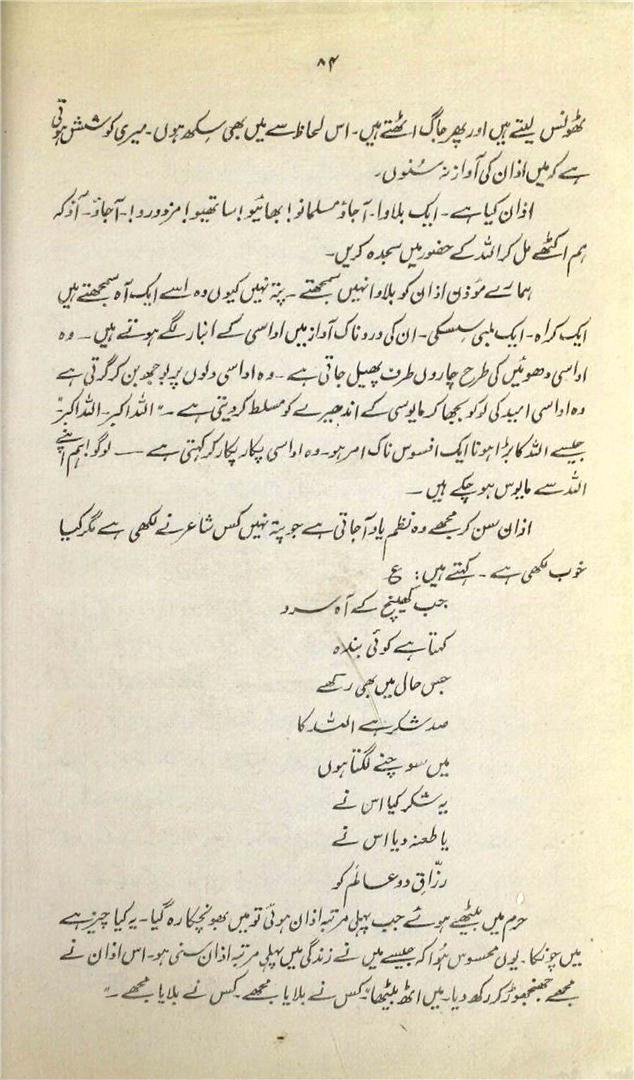 ۸۴
ٹھونس لیتے ہیں اور پھر جاگ اٹھتے ہیں۔ اس لحاظ سے میں بھی سکھ ہوں۔ میری کوشش ہوتی
ہے کہ میں اذان کی آواز نہ سنوں۔
اذان کیا ہے۔ ایک بلاوا۔ آجاؤ مسلمانو! بھائیو! ساتھیو! مزدورو!۔ آجاؤ۔ آؤ کہ
ہم اکٹھے مل کر اللہ کے حضور میں سجدہ کریں۔
ہمارے مؤذن اذان کو بلاوا نہیں سمجھتے۔ پتہ نہیں کیوں وہ اسے ایک آہ سمجھتے ہیں
ایک کراہ۔ ایک لمبی سسکی۔ ان کی دردناک آواز میں اداسی کے انبار لگے ہوتے ہیں۔ وہ
اداسی دھوئیں کی طرح چاروں طرف پھیل جاتی ہے۔ وہ اداسی دلوں پر بوجھ بن کر گرتی ہے
وہ اداسی امید کی لو کو بجھا کر مایوسی کے اندھیرے کو مسلط کر دیتی ہے۔ "اللہ اکبر۔ اللہ اکبر"
جیسے اللہ کا بڑا ہونا ایک افسوس ناک امر ہو۔ وہ اداسی پکار پکار کر کہتی ہے —— لوگو! ہم اپنے
اللہ سے مایوس ہو چکے ہیں۔
اذان سن کر مجھے وہ نظم یاد آجاتی ہے جو پتہ نہیں کس شاعر نے لکھی ہے مگر کیا
خوب لکھی ہے۔ کہتے ہیں: ع
جب کھینچ کے آہ سرد
کہتا ہے کوئی بندہ
جس حال میں بھی رکھے
صد شکر ہے اللہ کا
میں سوچنے لگتا ہوں
یہ شکر کیا اس نے
یا طعنہ دیا اس نے
رزّاق دو عالم کو
حرم میں بیٹھے ہوئے جب پہلی مرتبہ اذان ہوئی تو میں بھونچکا رہ گیا۔ یہ کیا چیز ہے
میں چونکا۔ یوں محسوس ہوا کہ جیسے میں نے زندگی میں پہلی مرتبہ اذان سنی ہو۔ اس اذان نے
مجھے جھنجھوڑ کر رکھ دیا۔ میں اٹھ بیٹھا "کس نے بلایا مجھے۔ کس نے بلایا مجھے۔"